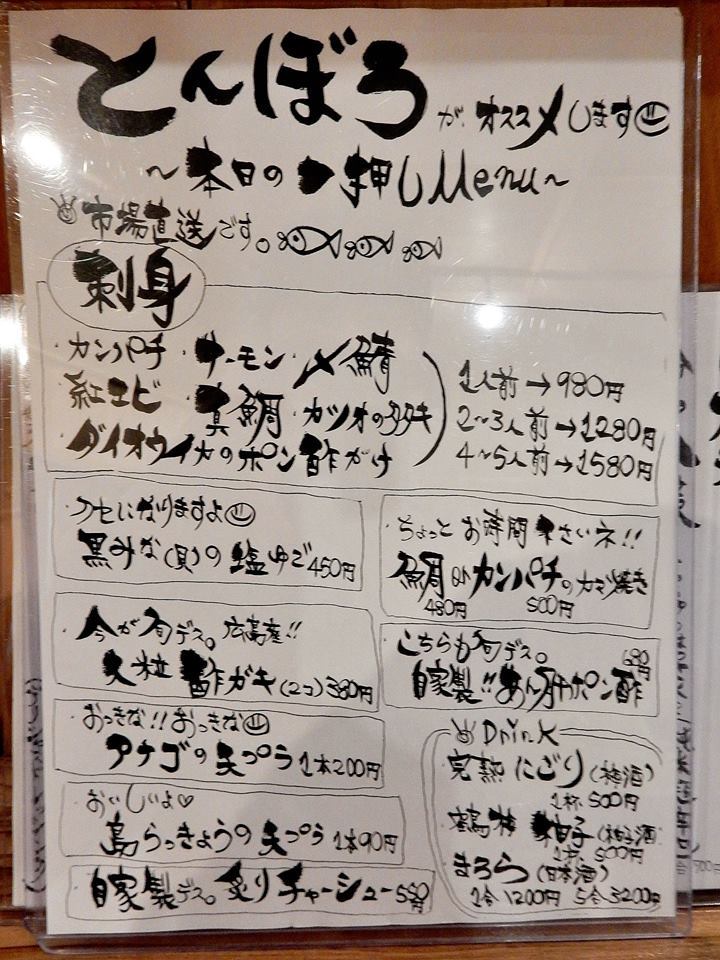 とんぼろ が、オススメします
～本日の一押しMenu～
市場直送です。
刺身
・カンパチ ・サーモン ・〆鯖
・紅エビ ・真鯛 ・カツオのタタキ
・ダイオウイカのポン酢がけ
1人前→980円
2～3人前→1280円
4～5人前→1580円
・クセになりますよ
黒みな(貝)の塩ゆで450円
・ちょっとお時間下さいネ!!
鯛orカンパチのカマ焼き
480円 500円
・今が旬デス。広島産!!
大粒酢ガキ(2コ)380円
・こちらも旬デス。
自家製!!あん肝ポン酢
680円
・おっきな!!おっきな
アナゴの天ぷら1本200円
・おいしいよ♡
島らっきょうの天ぷら1本90円
・自家製デス。炙りチャーシュー550円
Drink
完熟にごり(梅酒)
1杯、500円
柚子(柚子酒)
1杯、500円
まろら(日本酒)
1合1200円 5合3200円